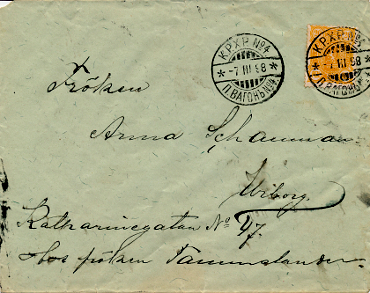 К.Р.Х.Р. №4
-7 III 98
П.ВАГОНЪ №4
К.Р.Х.Р. №4
-7 III 98
П.ВАГОНЪ №4
Fröken
Anna Schauman
Wiborg.
Katharinegatan No 47.
Hos fröken Tammelander.